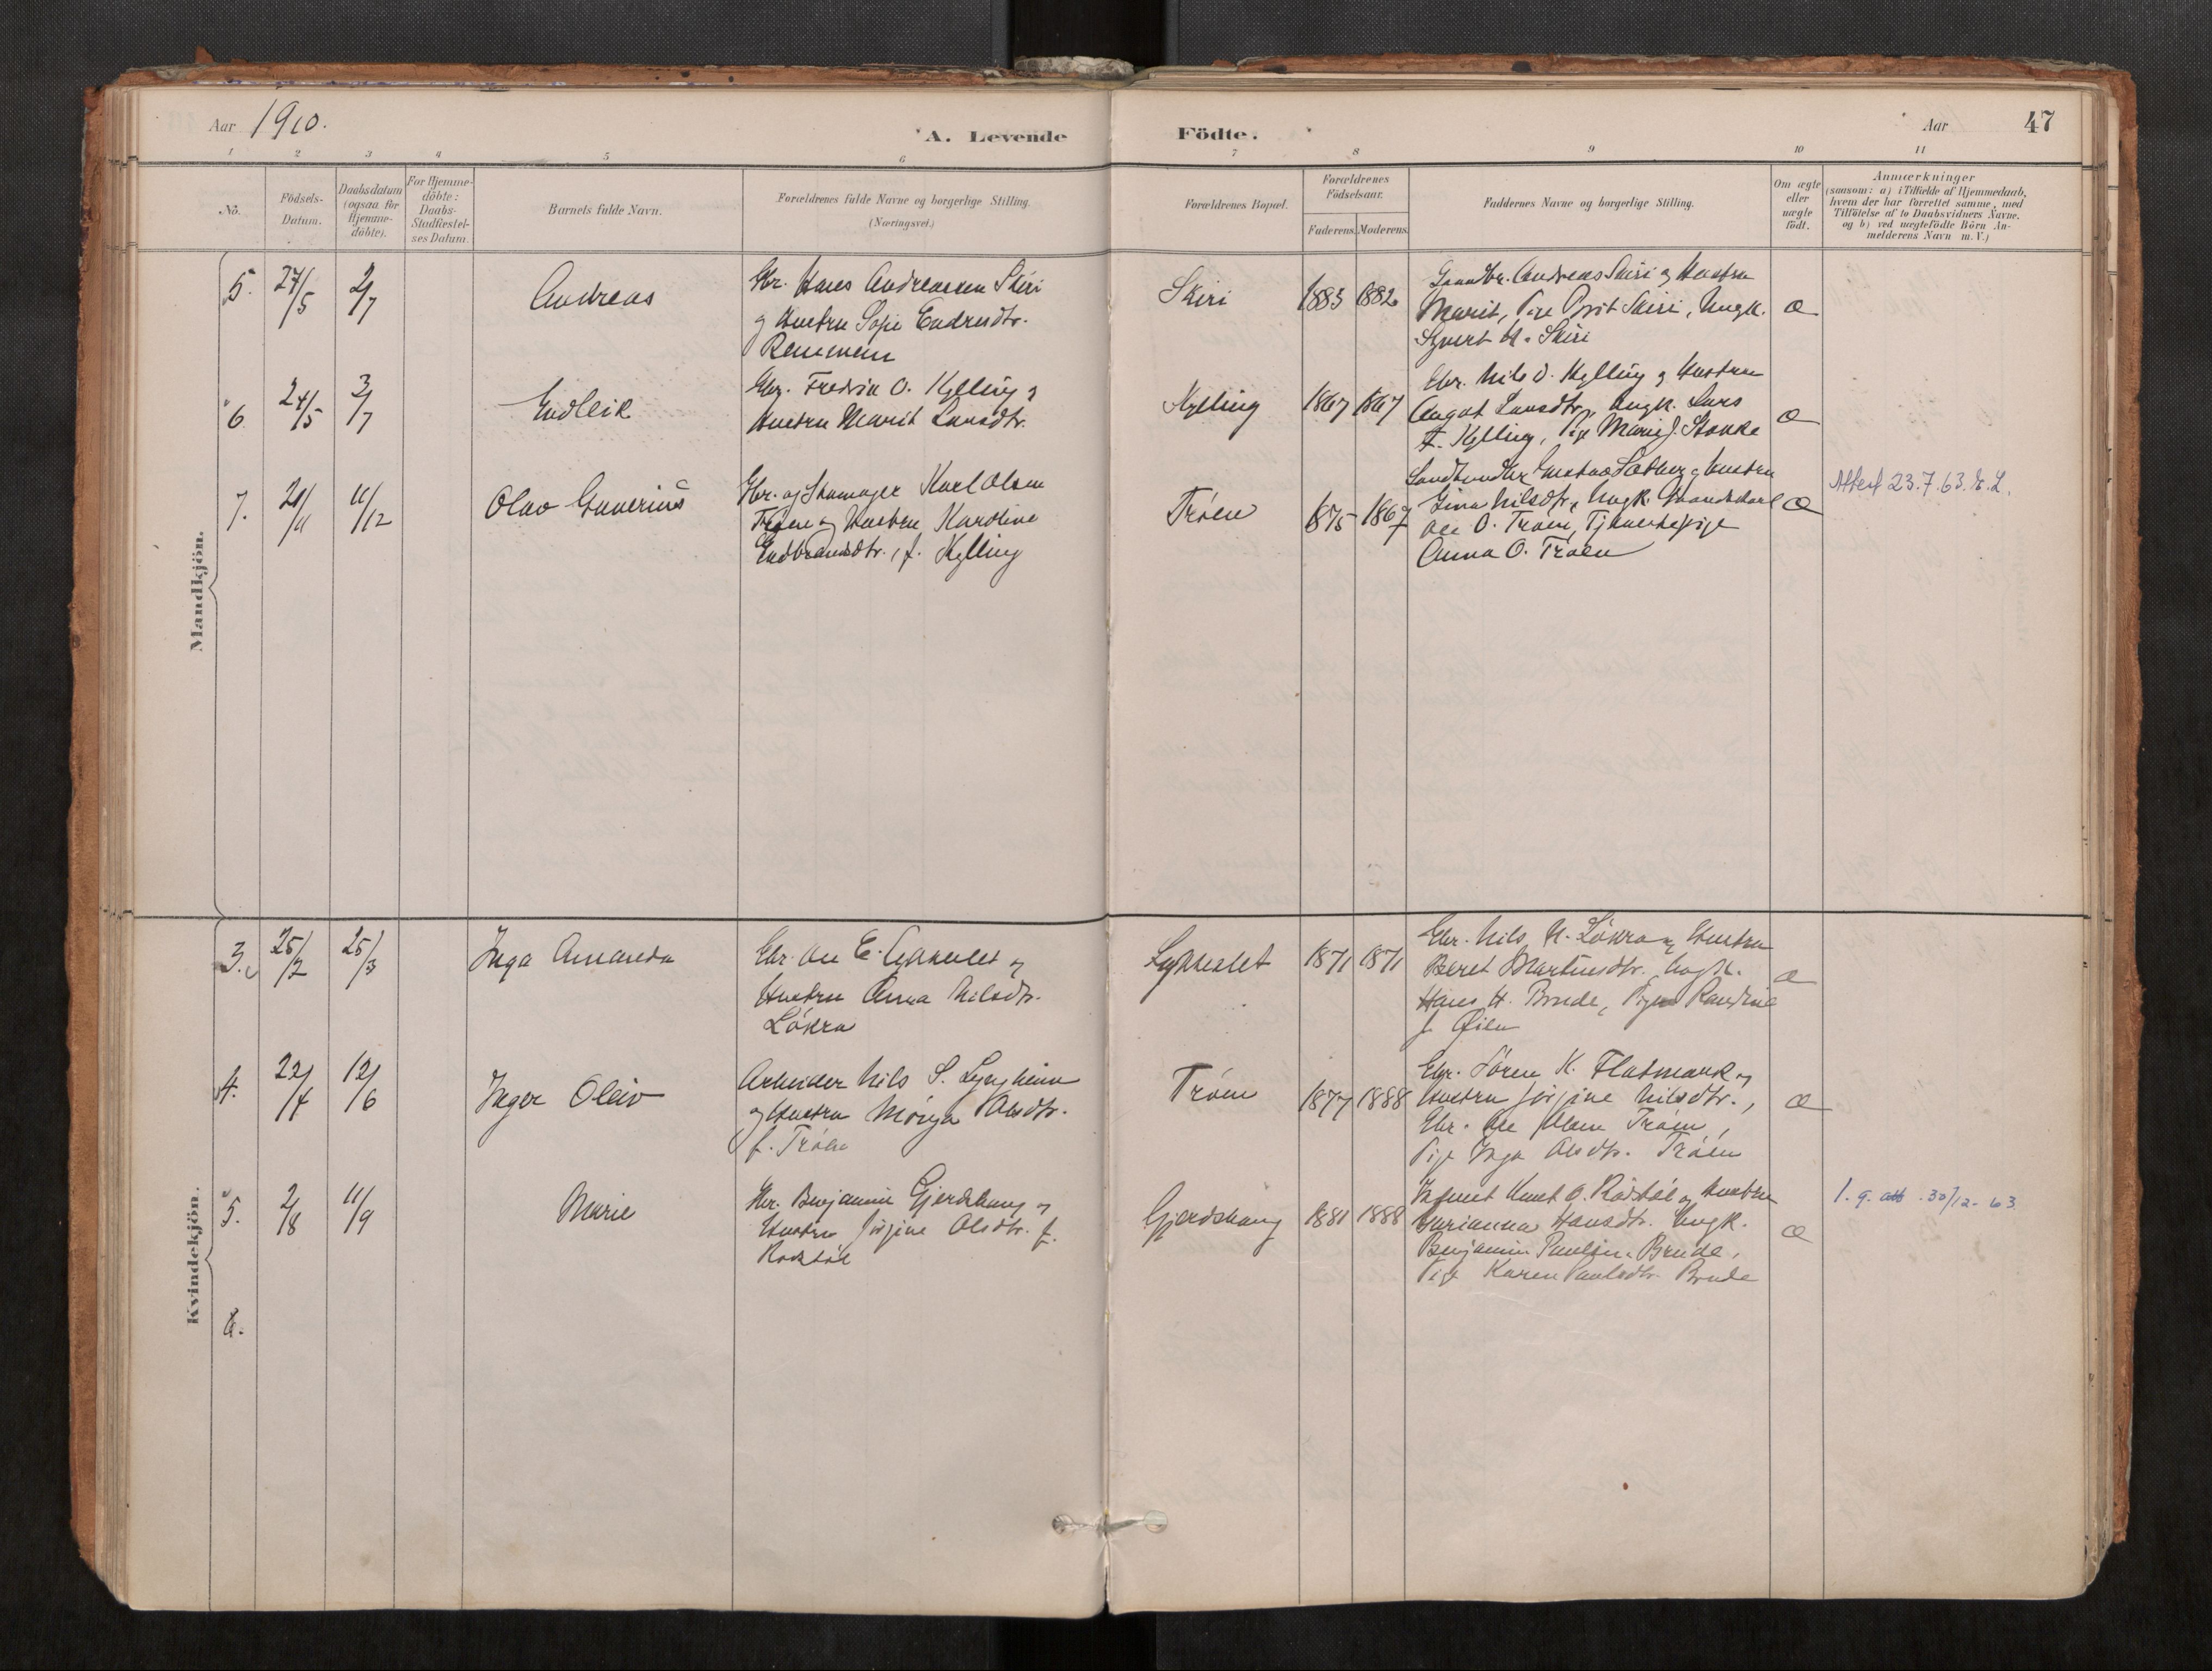 Aar 1910.
A. Levende
Födte.
Aar
47
1 2 3 4 5 6 7 8 9 10 11
Nö.
Födsels-
Datum.
Daabsdatum
(ogsaa for
Hjemme-
döbte).
For Hjemme-
döbte:
Daabs-
Stadfæstel-
ses Datum.
Barnets fulde Navn.
Forældrenes fulde Navne og borgerlige Stilling.
(Næringsvei.)
Forældrenes Bopæl.
Forældrenes
Födselsaar.
Faderens. Moderens.
Faddernes Navne og borgerlige Stilling.
Om ægte
eller
uægte
födt.
Anmærkninger
(saasom: a) i Tilfælde af Hjemmedaab,
hvem der har forrettet samme, med
Tilföielse af to Daabsvidners Navne.
og b) ved uægtefödte Börn An-
melderens Navn m. V.)
Mandkjön.
5. 27/5 2/7 Andreas
Gbr. Hans Andreassen Skiri
og Hustru Sofie Endresdtr.
Remmem
Skiri 1883 1882
Gaardbr. Andreas Skiri og Hustru
Marit, Pige Brit Skiri, Ungk.
Syvert H. Skiri
æ
6. 24/5 3/7 Endleik
Gbr. Fredrik O. Kylling og
Hustru Marit Larsdtr.
Kylling 1867 1867
Gbr. Nils O. Kylling og Hustru
Angot Larsdtr., Ungk. Lars
F. Kylling, Pige Marie J. Stokke
æ
7. 20/11 11/12 Olav Gunerius
Gbr. og Skomager Karl Olsen
Trøen og Hustru Karoline
Gudbrandsdtr., f. Kylling
Trøen 1875 1867
Landhandler Gustav Sætberg og Hustru
Gina Nilsdtr., Ungk.
Ole O. Trøen, Tjenestepige
Anna O. Trøen
æ
Attest 23.7.63. E.L.
Kvindekjön.
3. 25/2 25/3 Inga Amanda
Gbr. Ole E. Lykkeslet og
Hustru Anna Nilsdtr.
Løkra
Lykkeslet 1871 1871
Gbr. Nils N. Løkra og Hustru
Beret Martinsdtr. Ungk.
Hans H. Brude, Pige Randine
J. Øien
æ
4. 22/4 12/6 Inger Oleiv
Arbeider Nils S. Lyngheim
og Hustru Mørya Olsdtr.
f. Trøen
Trøen 1877 1888
Gbr. Søren K. Flatmark og
Hustru Jørgine Nilsdtr.,
Gbr. Ole Olsen Trøen,
Pige Inga Olsdtr. Trøen
æ
5. 2/8 11/9 Marie
Gbr. Benjamin Gjerdshaug og
Hustru Jørgine Olsdtr. f.
Rødstøl
Gjerdshaug 1881 1888
Knut O. Rødstøl og Hustru
Marianna Hansdtr. Ungk.
Benjamin Paulsen Brude,
Pige Karen Paulsdtr. Brude
æ
l. g. att. 30/12-63.
6.